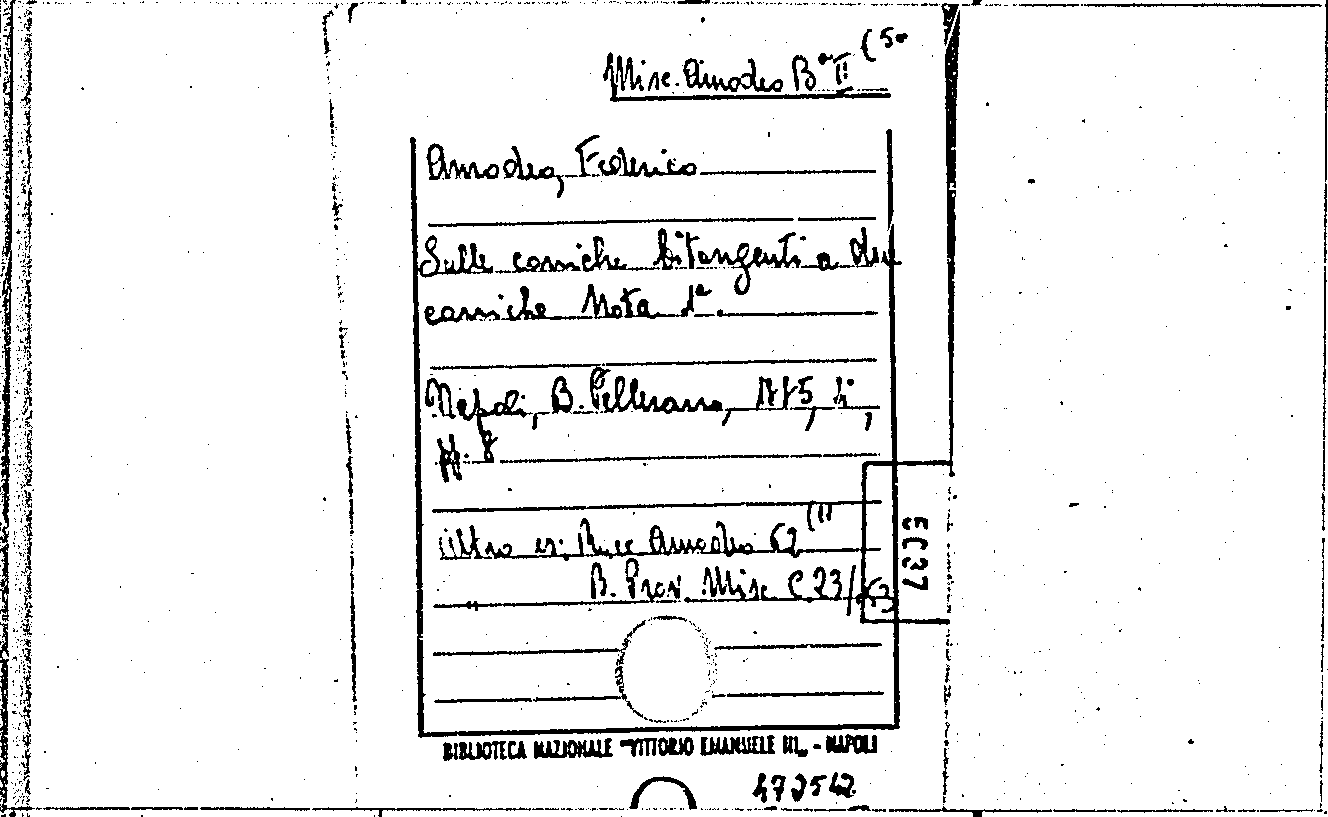 Misc. Amodeo B^a II (50
Amodeo, Federico
Sulle coniche bitangenti a due
coniche Nota 1^a.
Napoli, B. Pellerano,
pp. 8
Altro es: Misc Amodeo 62 (11
" B. Prov. Misc C. 23/63
5037
BIBLIOTECA NAZIONALE "VITTORIO EMANUELE III„ - NAPOLI
472542